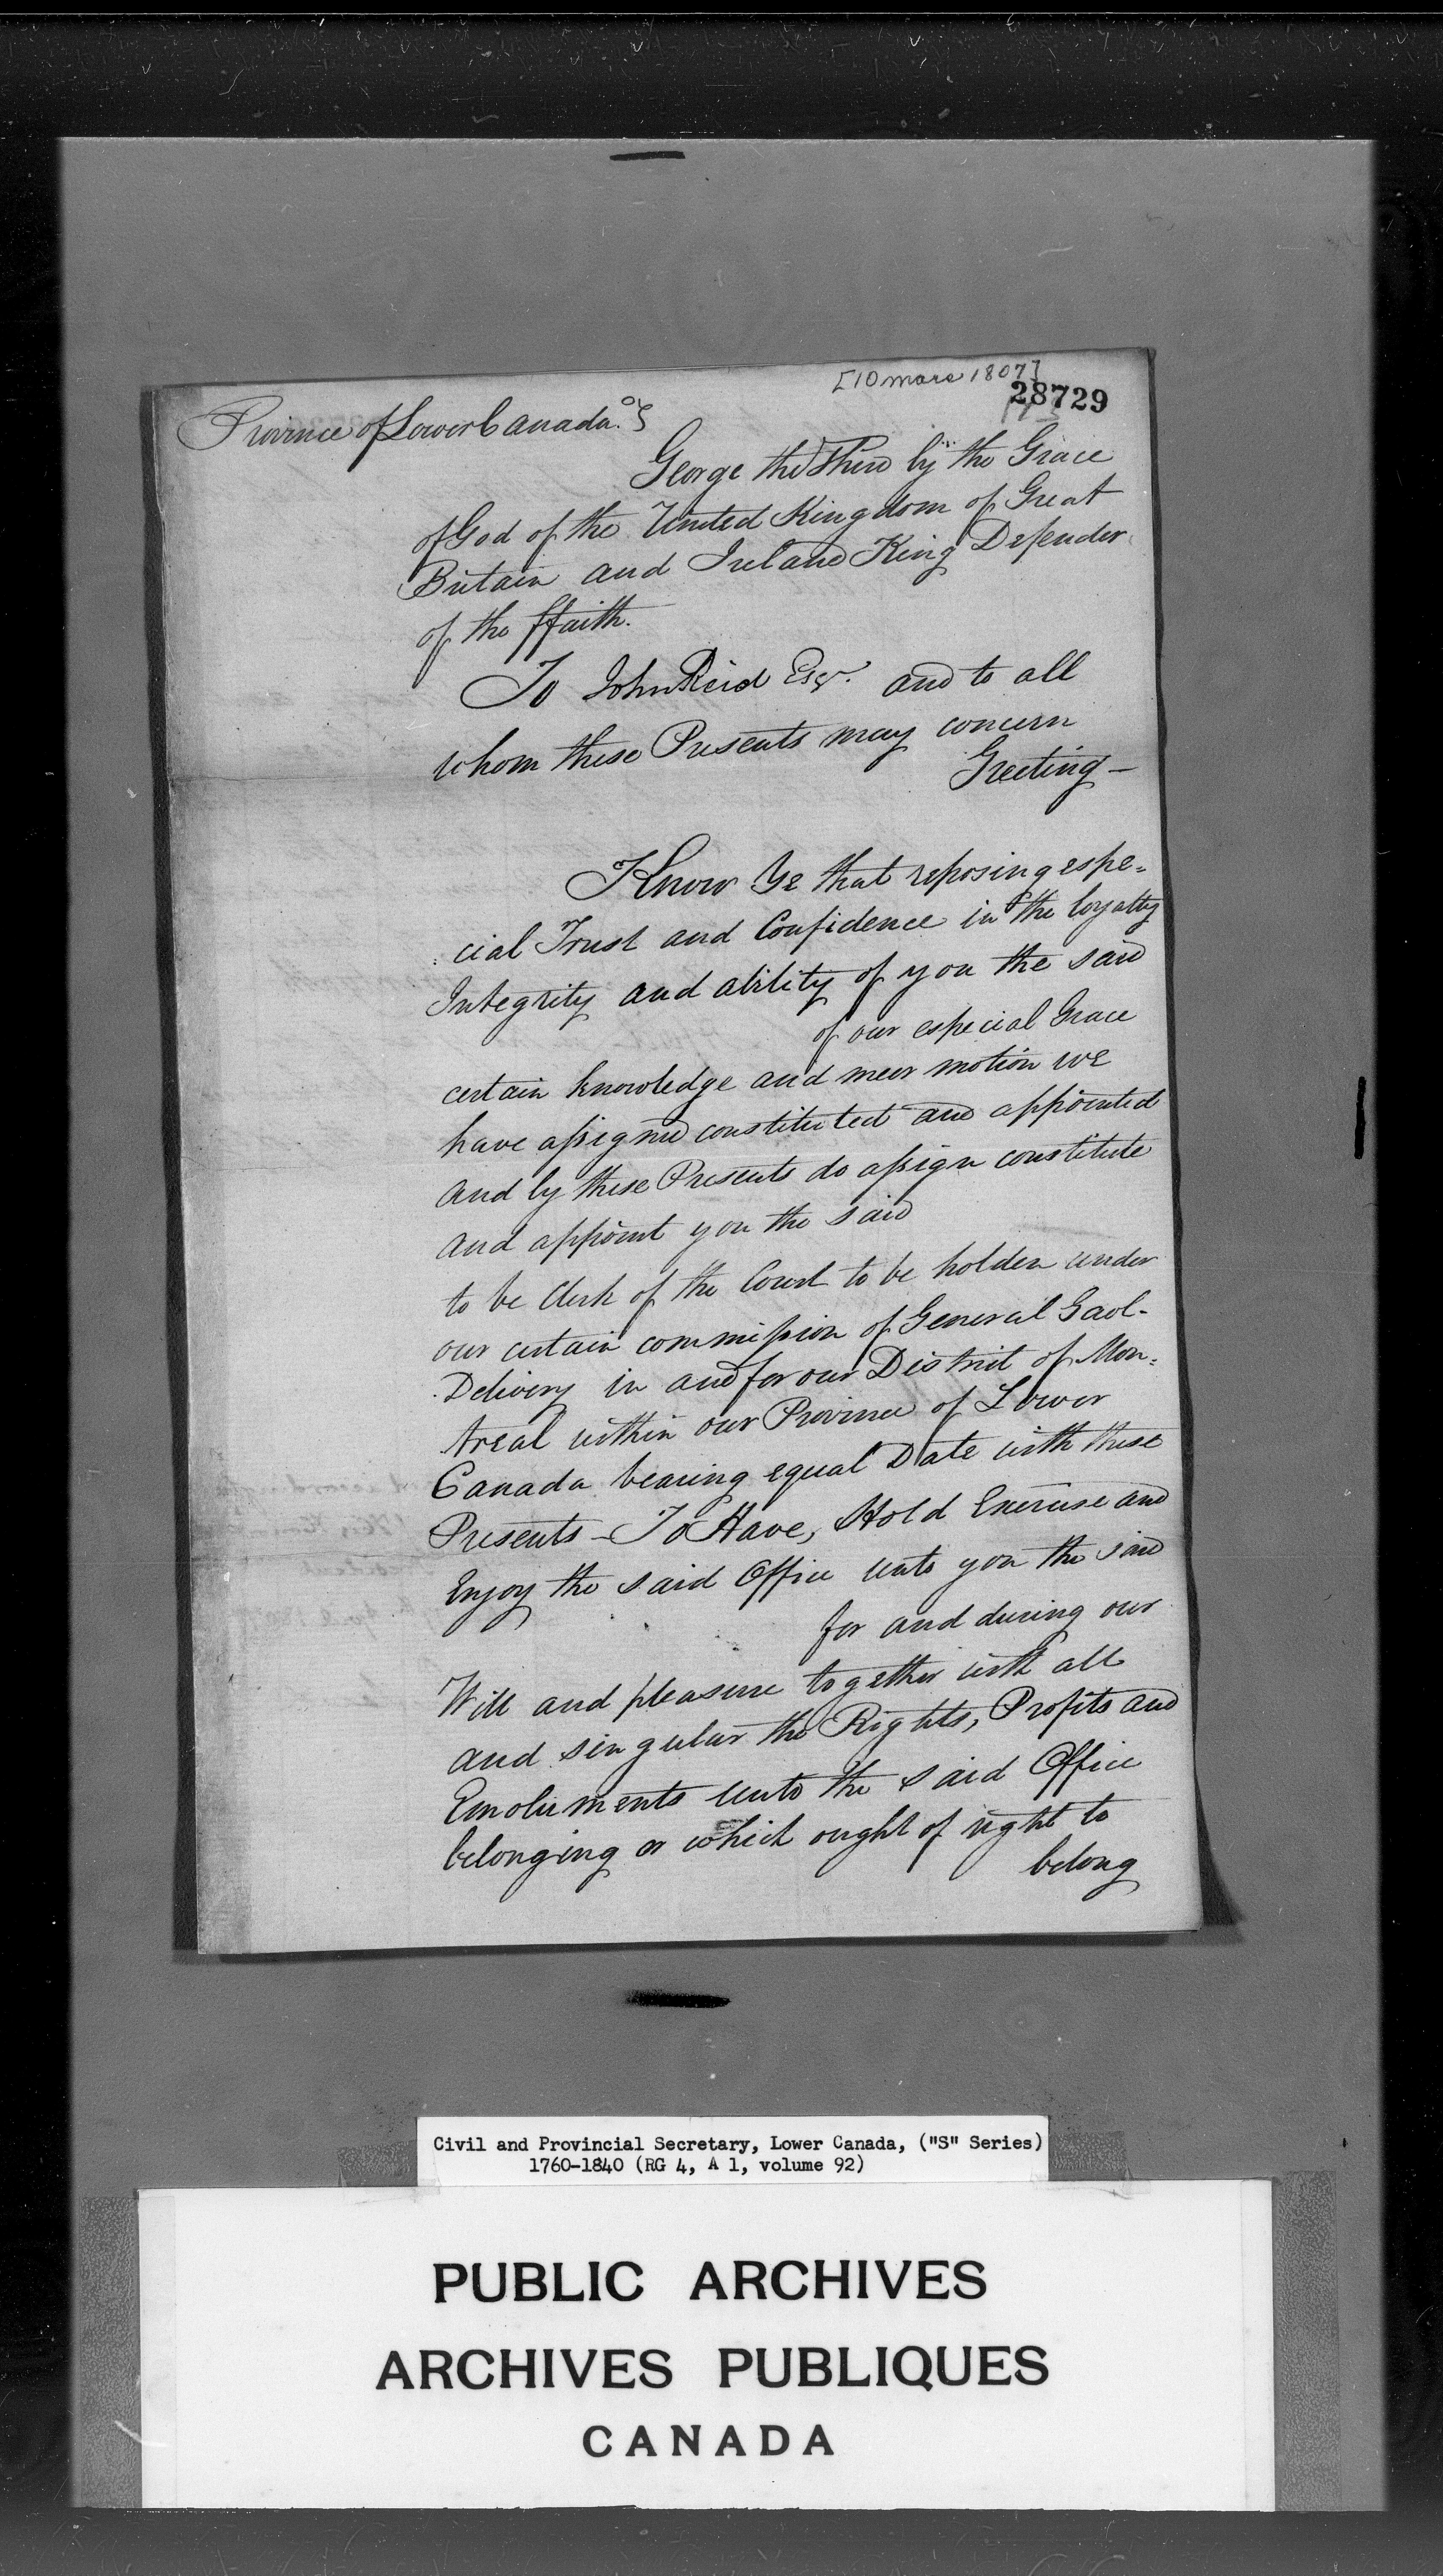 [10 mars 1807]
28729
Province of Lower Canada.
George the Third by the Grace
of God of the United Kingdom of Great
Britain and Ireland King Defender
of the ffaith.
To John Reid Esqr. and to all
whom these Presents may concern
Greeting -
Know Ye that reposing espe=
cial Trust and Confidence in the loyalty
Integrity and ability of you the said
of our especial Grace
certain knowledge and meer motion we
have assigned constituted and appointed
and by these Presents do assign constitute
and appoint you the said
to be Clerk of the Court to be holden under
our certain commission of General Gaol-
Delivery in and for our District of Mon=
treal within our Province of Lower
Canada bearing equal Date with these
Presents - To Have, Hold Exercise and
Enjoy the said Office unto you the said
for and during our
Will and pleasure together with all
and singular the Rights, Profits and
Emoluments unto the said Office
belonging or which ought of right to
belong
Civil and Provincial Secretary, Lower Canada, ("S" Series)
1760-1840 (RG 4, A 1, volume 92)
PUBLIC ARCHIVES
ARCHIVES PUBLIQUES
CANADA